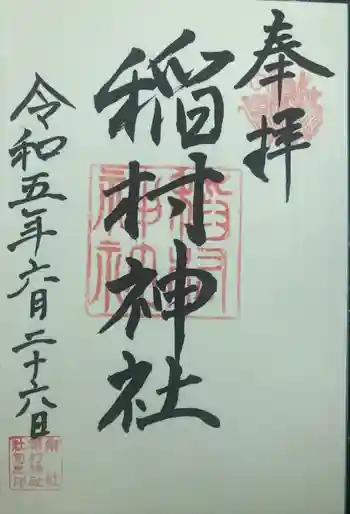 奉拝
稲村神社
令和五年六月二十六日
稲村神社